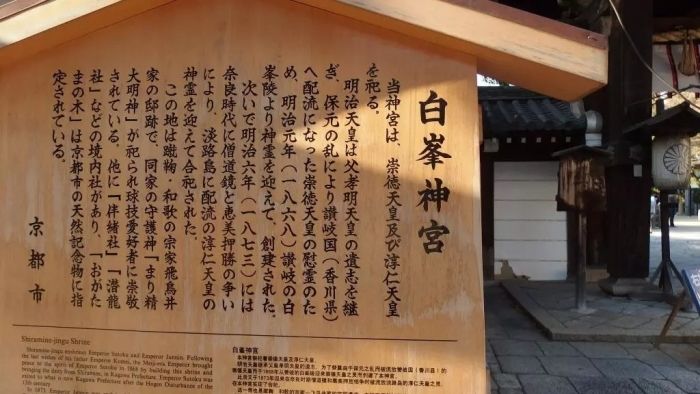 白峯神宮
当神宮は、崇徳天皇及び淳仁天皇
を祀る。
明治天皇は父孝明天皇の遺志を継
ぎ、保元の乱により讃岐国（香川県）
へ配流になった崇徳天皇の慰霊のた
め、明治元年（一八六八）讃岐の白
峯陵より神霊を迎えて、創建された。
次いで明治六年（一八七三）には
奈良時代に僧道鏡と恵美押勝の争い
により、淡路島に配流の淳仁天皇の
神霊を迎えて合祀された。
この地は蹴鞠・和歌の宗家飛鳥井
家の邸跡で、同家の守護神「まり精
大明神」が祀られ球技愛好者に崇敬
されている。他に「伴緒社」「潜龍
社」などの境内社があり、「おがた
まの木」は京都市の天然記念物に指
定されている。
京都市
Shiramine-jingu Shrine
Shiramine-jingu enshrines Emperor Sutoku and Emperor Junnin. Following
the last wishes of his father Emperor Komei, the Meiji-era Emperor brought
peace to the spirit of Emperor Sutoku in 1868 by building this shrine and
bringing the deity from Shiramine, in Kagawa Prefecture. Emperor Sutoku was
exiled to what is now Kagawa Prefecture after the Hogen Disturbance of the
12th century.
In 1873, Emperor
白峯神宮